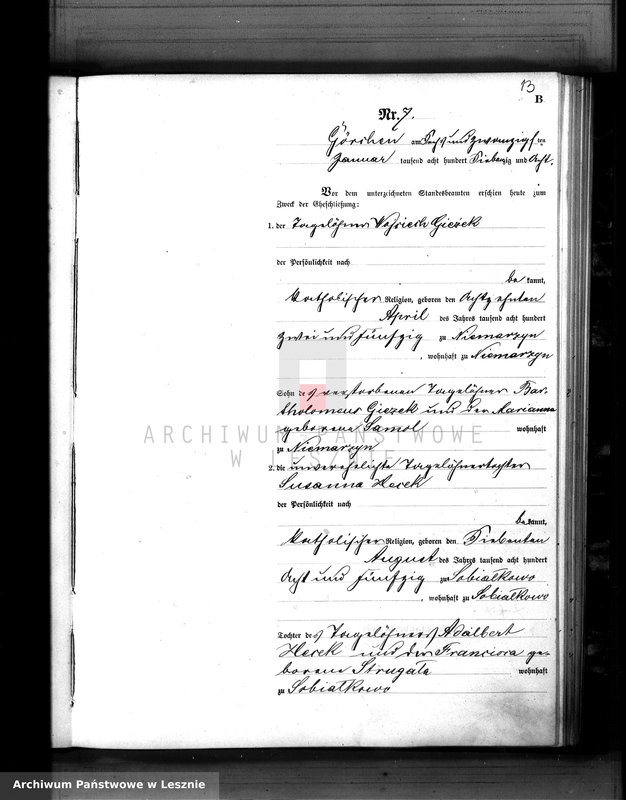 13
B
Nr. 7.
Görchen am Sechs und zwanzigsten
Januar tausend acht hundert Siebenzig und Acht.
Vor dem unterzeichneten Standesbeamten erschien heute zum
Zweck der Eheschließung:
1. der Tagelöhner Wojciech Giezek
der Persönlichkeit nach
be kannt,
katholischer Religion, geboren den Achtzehnten
April des Jahres tausend acht hundert
zwei und fünfzig zu Niemarzyn
, wohnhaft zu Niemarzyn
Sohn des verstorbenen Tagelöhner Bar-
tholomeus Giezek und der Marianna
geborene Samol wohnhaft
zu Niemarzyn
2. die unverehelichte Tagelöhnertochter
Susanna Herek
der Persönlichkeit nach
be kannt,
katholischer Religion, geboren den Siebenten
August des Jahres tausend acht hundert
Acht und fünfzig zu Sobialkowo
, wohnhaft zu Sobialkowo
Tochter des Tagelöhners Adalbert
Herek und der Francisca ge-
borene Strugała wohnhaft
zu Sobialkowo
ARCHIWUM PAŃSTWOWE
W LESZNIE
Archiwum Państwowe w Lesznie